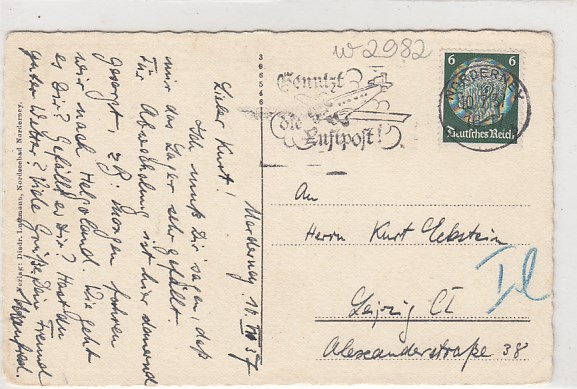 w 2982
Benutzt
die
Luftpost!
NORDERNEY
6 6
Deutsches Reich
306546
Norderney 10. VII 37
Lieber Kurt!
Ich muß Dir sagen, daß
mir das Lager sehr gefällt.
Für Abwechslung ist hier dauernd
gesorgt, z.B. Morgen fahren
wir nach Helgoland. Wie geht
es Dir? Gefällt es Dir? Hast du
gutes Wetter? Viele Grüße Dein Freund
An
Herrn Kurt Eckstein
Leipzig C1
Alexanderstraße 38
Nordseebad Norderney.